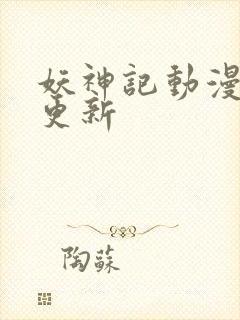 妖神記動漫
更新
陶蘇